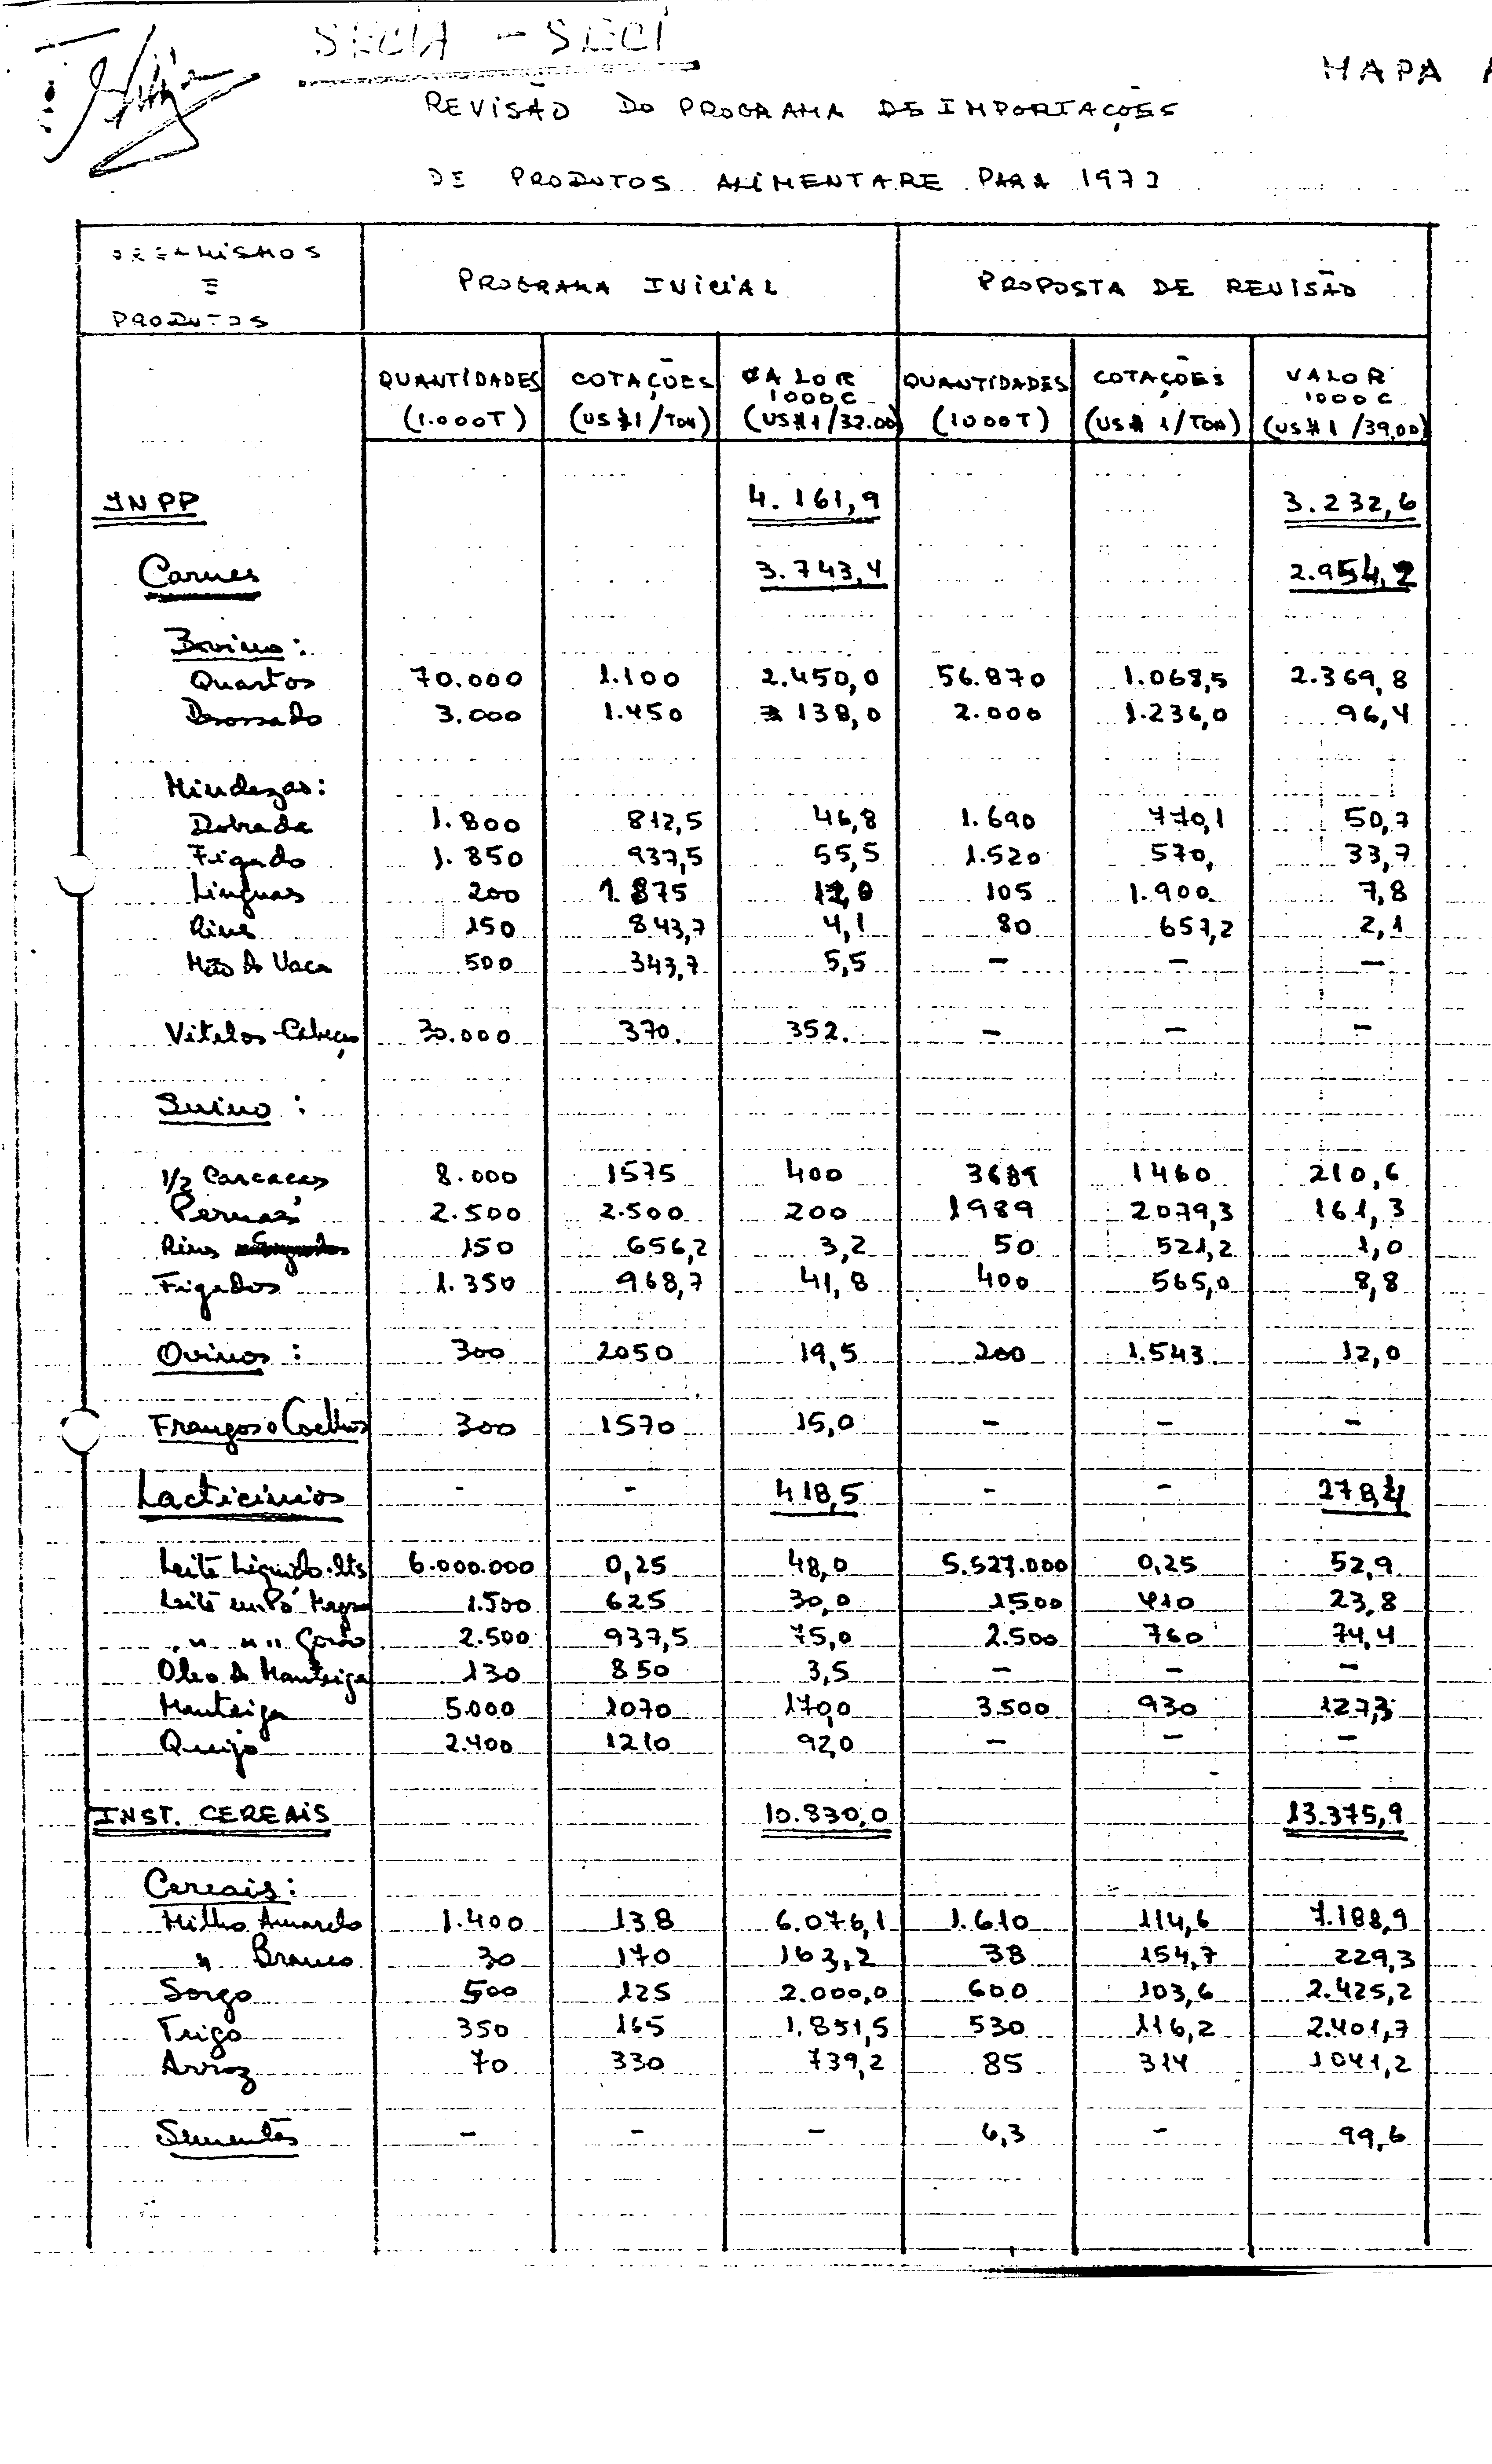 SECIA - SECI
MAPA
REVISÃO DO PROGRAMA DE IMPORTAÇÕES
DE PRODUTOS ALIMENTARE PARA 1977
ORGANISMOS E PRODUTOS PROGRAMA INICIAL PROPOSTA DE REVISÃO
QUANTIDADES (1.000T) COTAÇÕES (US$1/TON) VALOR 1000C (US$1/32.00) QUANTIDADES (1000T) COTAÇÕES (US$ 1/TON) VALOR 1000C (US$1/39,00)
INPP 4.161,9 3.232,6
Carnes 3.743,4 2.954,2
Bovino:
Quartos 70.000 1.100 2.450,0 56.870 1.068,5 2.369,8
Desossado 3.000 1.450 138,0 2.000 1.236,0 96,4
Miudezas:
Dobrada 1.800 812,5 46,8 1.690 770,1 50,7
Figado 1.850 937,5 55,5 1.520 570, 33,7
Linguas 200 1.875 12,0 105 1.900 7,8
Rins 150 843,7 4,1 80 657,2 2,1
Mão de Vaca 500 343,7 5,5 - - -
Vitelos-Cabeças 30.000 370. 352. - - -
Suino :
1/2 Carcaças 8.000 1575 400 3689 1460 210,6
Pernas 2.500 2.500 200 1989 2079,3 161,3
Rins 150 656,2 3,2 50 521,2 1,0
Figados 1.350 968,7 41,8 400 565,0 8,8
Ovinos : 300 2050 19,5 200 1.543 12,0
Frangos e Coelhos 300 1570 15,0 - - -
Lacticinios - - 418,5 - - 278,4
Leite Liquido-lts 6.000.000 0,25 48,0 5.527.000 0,25 52,9
Leite em Pó Magro 1.500 625 30,0 1500 410 23,8
" " " Gordo 2.500 937,5 75,0 2.500 760 74,4
Oleo de Manteiga 130 850 3,5 - - -
Manteiga 5.000 1070 170,0 3.500 930 127,3
Queijo 2.400 1210 92,0 - - -
INST. CEREAIS 10.830,0 13.375,9
Cereais:
Milho Amarelo 1.400 138 6.076,1 1.610 114,6 7.188,9
" Branco 30 170 163,2 38 154,7 229,3
Sorgo 500 125 2.000,0 600 103,6 2.425,2
Trigo 350 165 1.851,5 530 116,2 2.401,7
Arroz 70 330 739,2 85 314 1041,2
Sementes - - - 6,3 - 99,6